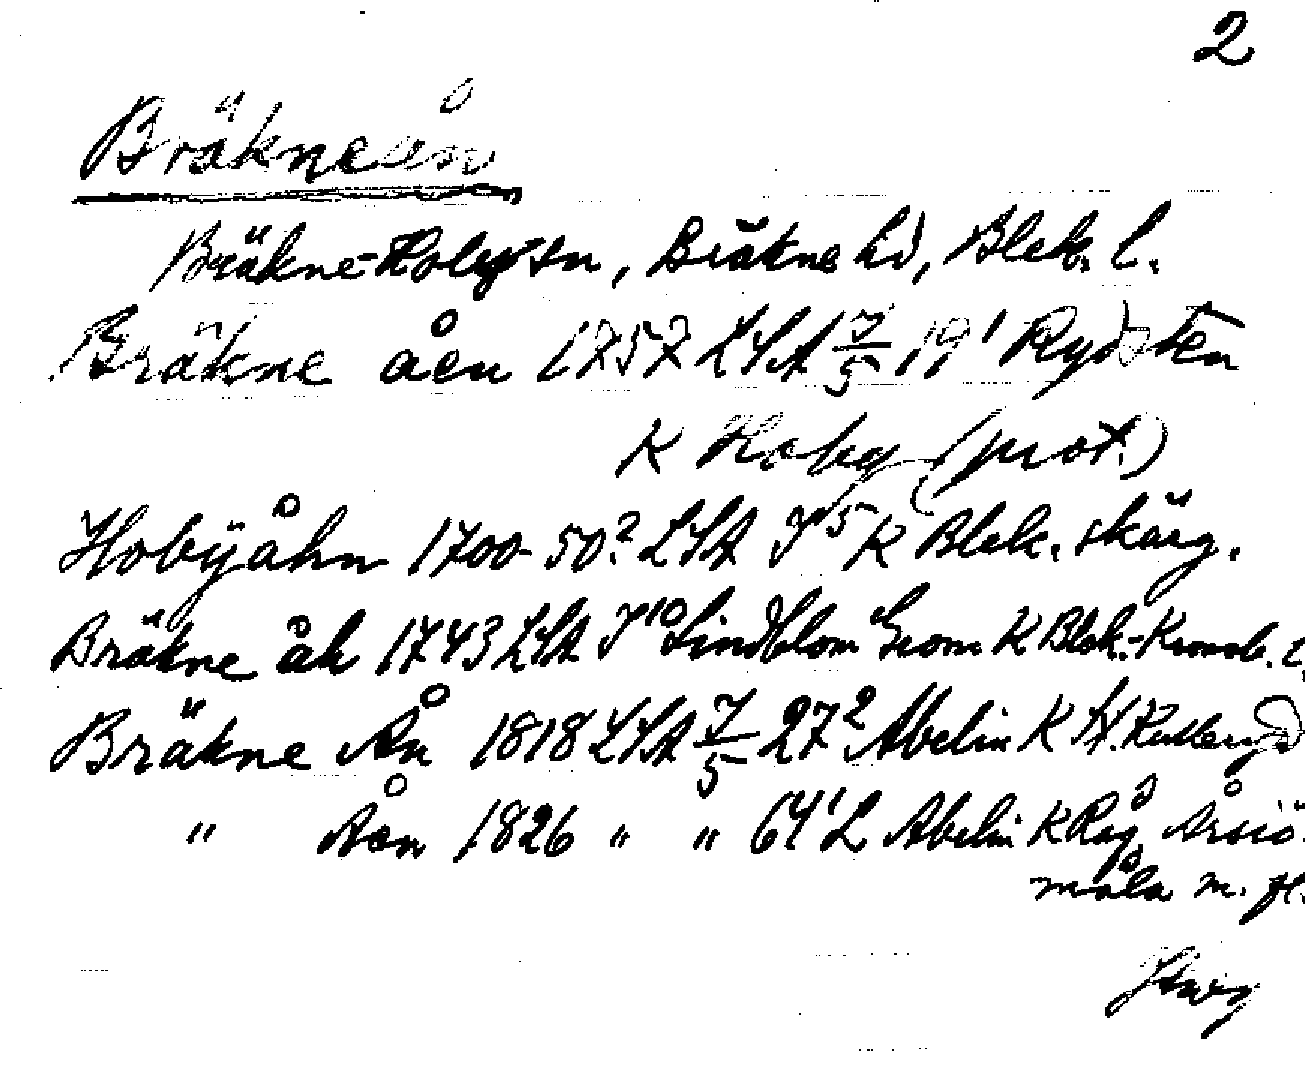 2
Bräkneån
Bräkne-Hoby sn, Bräkne hd, Blek. l.
Bräkne åen 1757 LSA 7/5 19¹ Rydsten
K Hoby (prot.)
Hobyåhn 1700-50? LSA J⁵ K Blek. skärg.
Bräkne åh 1743 LSA J¹⁰ Lindblom Geom K Blek.-Kronob. l.
Bräkne Ån 1818 LSA 7/5 27² Abelin K H. Kulleryd
" Åen 1826 " " 64¹ L Abelin K Åresiö-
måla m. fl.